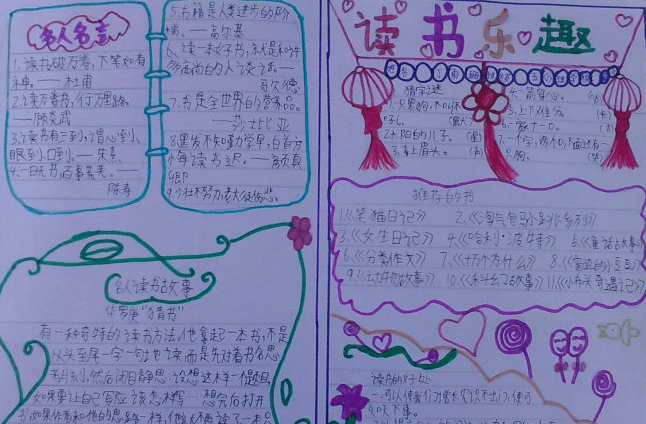 名人名言
1.读书破万卷,下笔如有
神。——杜甫
2.读万卷书,行万里路。
——顾炎武
3.读书有三到,谓心到、
眼到、口到。——朱熹
4.一日无书,百事荒芜。——
陈寿
5.书籍是人类进步的阶
梯。——高尔基
6.读一本好书,就是和许
多高尚的人谈话。——
歌德
7.书是全世界的营养品。
——莎士比亚
8.黑发不知勤学早,白首方
悔读书迟。——颜真
卿
9.少壮不努力,老大徒伤悲。
名人读书故事
华罗庚“猜书”
有一种奇特的读书方法,他拿起一本书,不是
从头至尾一字一句地读,而是先对着书名思
然后闭目静思,设想这样一个题目,
如果要让自己写应该怎样写 想完后打开
书,如果作者和他的思路一样,他就不再读了一本
读书乐趣
猜字谜
1.一只黑狗,不叫不
吼。
2.太阳的儿子。
3.
4.一箭穿心。
5.上下难分。
6.一家十一口。
7.一个字,两个口,下面还有一
只狗。
推荐的书
1.《笑猫日记》 2.《淘气包马小跳系列》
3.《女生日记》 4.《哈利·波特》 5.《童话故事》
6.《分类作文》 7.《十万个为什么》 8.《窗边的小豆豆》
9.《故事》 10.《科幻故事》 11.《小布头奇遇记》
读书的好处
一、可以使我们增长见识,不出门,便可
知天下事。